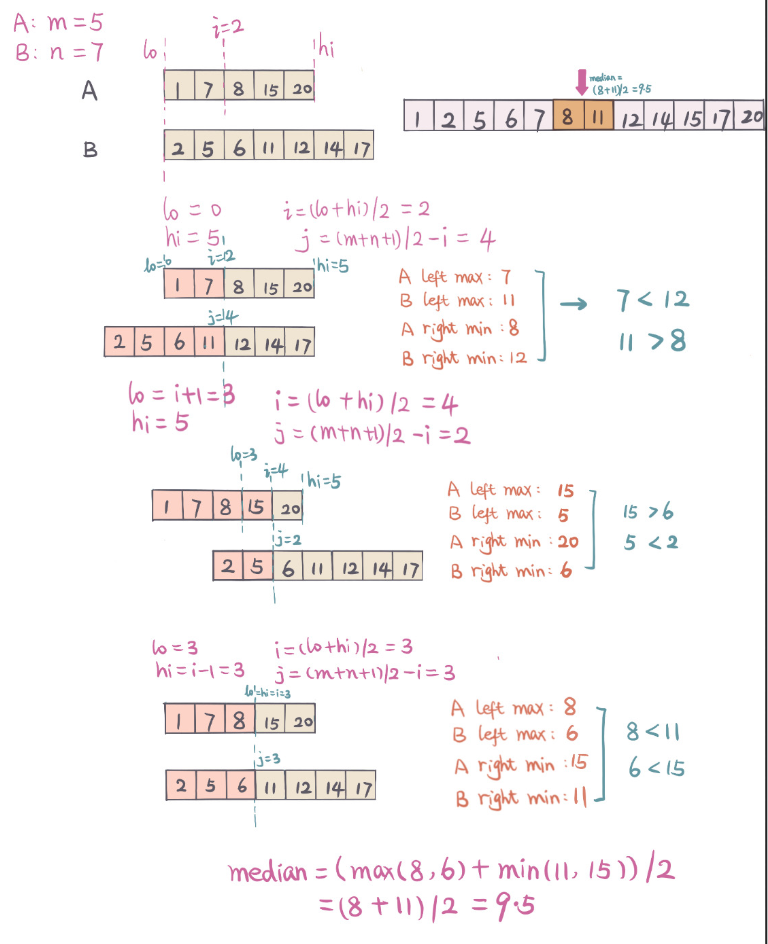 A: m=5
B: n=7
lo
i=2
hi
A
1 7 8 15 20
B
2 5 6 11 12 14 17
median =
(8+11)/2 = 9.5
1 2 5 6 7 8 11 12 14 15 17 20
lo = 0
i=(lo+hi)/2 = 2
hi = 5
j=(m+n+1)/2-i = 4
hi=5
1 7 8 15 20
2 5 6 11 12 14 17
A left max: 7
B left max: 11
A right min: 8
B right min: 12
→ 7 < 12
11 > 8
lo = i+1=3
i=(lo+hi)/2 = 4
hi = 5
j=(m+n+1)/2-i=2
lo=3
i=4
hi=5
1 7 8 15 20
j=2
2 5 6 11 12 14 17
A left max: 15
B left max: 5
A right min: 20
B right min: 6
15 > 6
5 < 2
lo=3
i=(lo+hi)/2 = 3
hi=i-1=3
j=(m+n+1)/2-i=3
lo=hi=i=3
1 7 8 15 20
j=3
2 5 6 11 12 14 17
A left max: 8
B left max: 6
A right min: 15
B right min: 11
8 < 11
6 < 15
median = (max(8,6) + min(11, 15))/2
=(8+11)/2 = 9.5